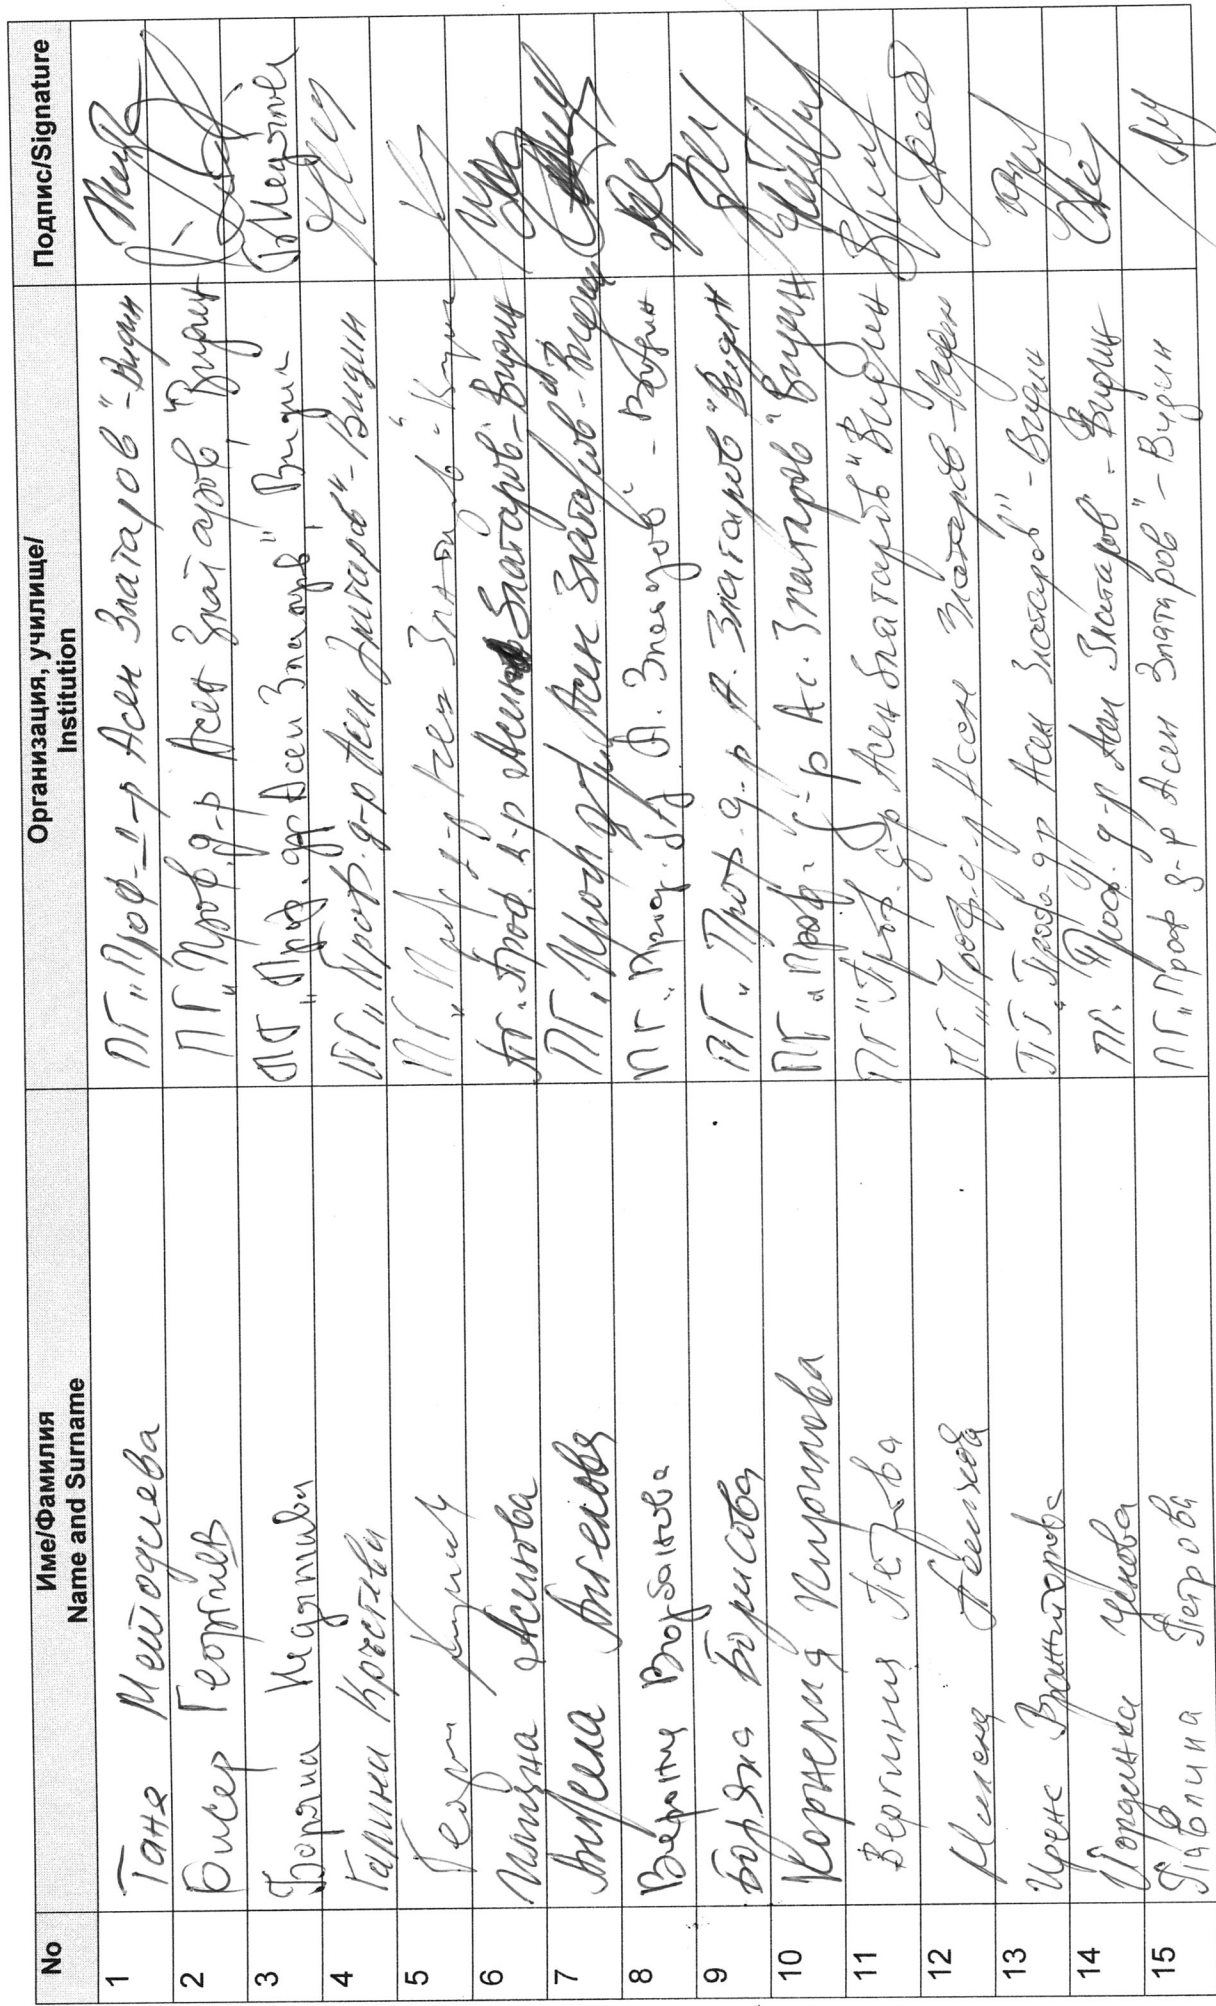 No Име/Фамилия Организация, училище/ Подпис/Signature
Name and Surname Institution
1 Таня Методиева ПГ „Проф. д-р Асен Златаров" - Видин
2 Бисер Георгиев ПГ „Проф. д-р Асен Златаров" Видин
3 Боряна ПГ „Проф. д-р Асен Златаров", Видин
4 Галина Кръстева ПГ „Проф. д-р Асен Златаров" - Видин
5 Георги ПГ „Проф. д-р Асен Златаров" - Видин
6 Асенова ПГ „Проф. д-р Асен Златаров - Видин
7 Анжела Ангелова ПГ „Проф д-р Асен Златаров" - Видин
8 Върбанова ПГ „Проф. д-р А. Златаров" - Видин
9 Боряна Борисова ПГ „Проф. д-р А. Златаров" Видин
10 Корнелия Кирилова ПГ „Проф. д-р Ас. Златаров" Видин
11 Вергиния Петрова ПГ "Проф. д-р Асен Златаров" Видин
12 Милена ПГ „Проф. д-р Асен Златаров - Видин
13 Ирена ПГ „Проф. д-р Асен Златаров" - Видин
14 Йорданка Ценова ПГ „Проф. д-р Асен Златаров" - Видин
15 Павлина Петрова ПГ „Проф д-р Асен Златаров" - Видин